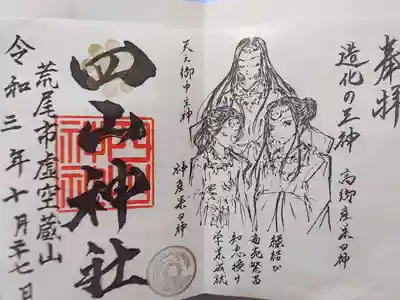 奉拝
造化の三神
高御産巣日神
天之御中主神
神産巣日神
縁結び
商売繁昌
知恵授け
学業成就
四山神社
荒尾市虚空蔵山
令和三年十月二十七日